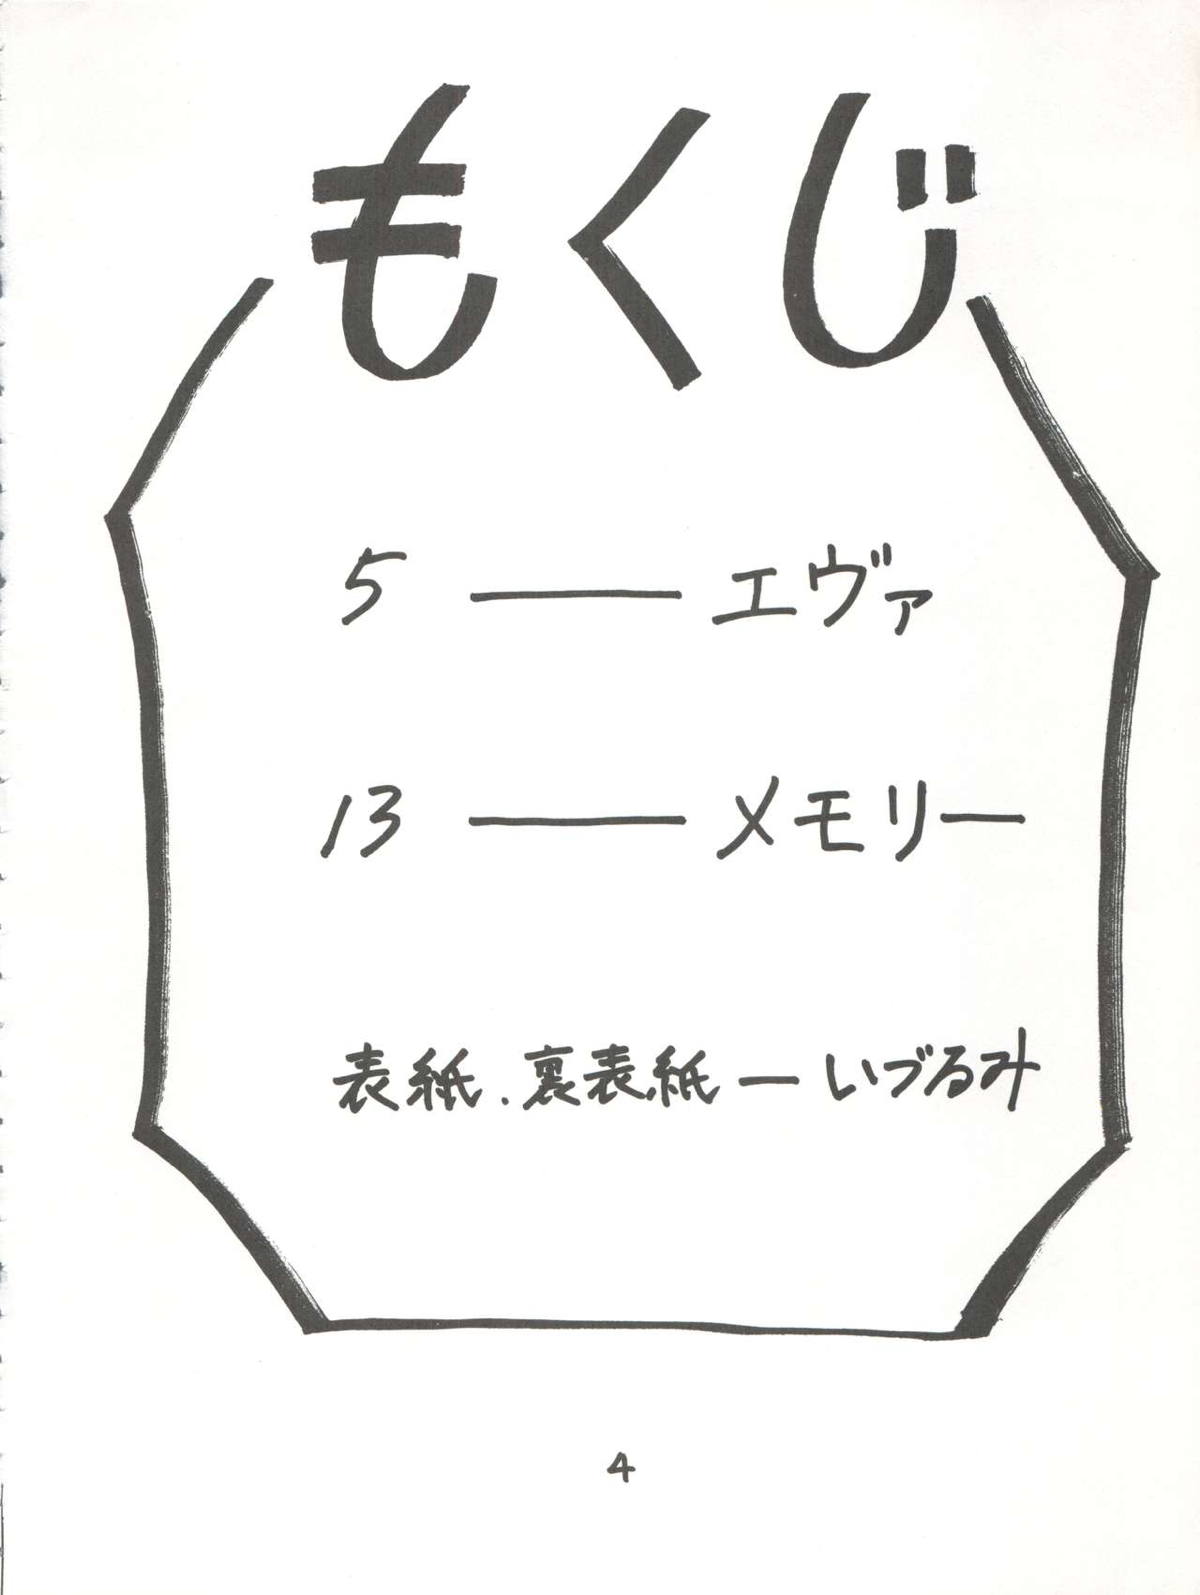 もくじ
5 — エヴァ
13 — メモリー
表紙、裏表紙 — いづるみ
4